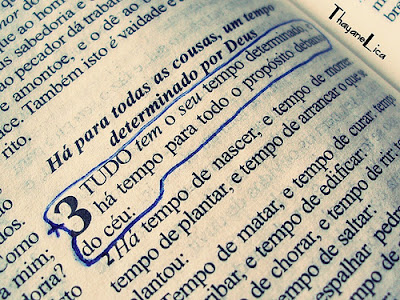 ThayaneLica
ao homem
sabedoria e
ao pecador dá trabalho
e amontoe, e o dê ao
ce. Também isto é vaidade e
rito.
Há para todas as cousas, um tempo
determinado por Deus
3 TUDO tem o seu tempo determinado
há tempo para todo o propósito debaixo
do céu:
2 Há tempo de nascer, e tempo de morrer
tempo de plantar, e tempo de arrancar o que
plantou:
Tempo de matar, e tempo de curar, tempo
ribar, e tempo de edificar:
de chorar, e tempo de rir:
tempo de saltar:
espalhar pedra
Como
a mim;
doria?